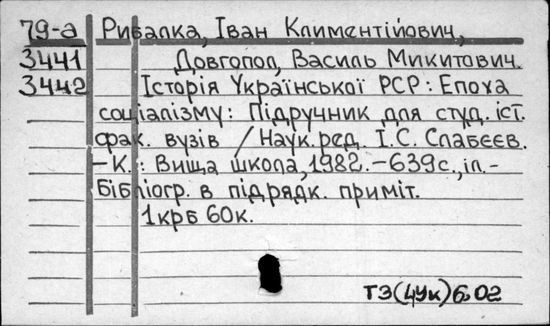 79-а Рибалка, Іван Климентійович,
3441 Довгопол, Василь Микитович.
3442 Історія Української РСР: Епоха
соціалізму: Підручник для студ. іст.
фак. вузів / Наук. ред. І.С. Слабєєв.
– К.: Вища школа, 1982. – 639 с., іл. –
Бібліогр. в підрядк. приміт.
1 крб 60 к.
ТЗ(4Ук)6.02